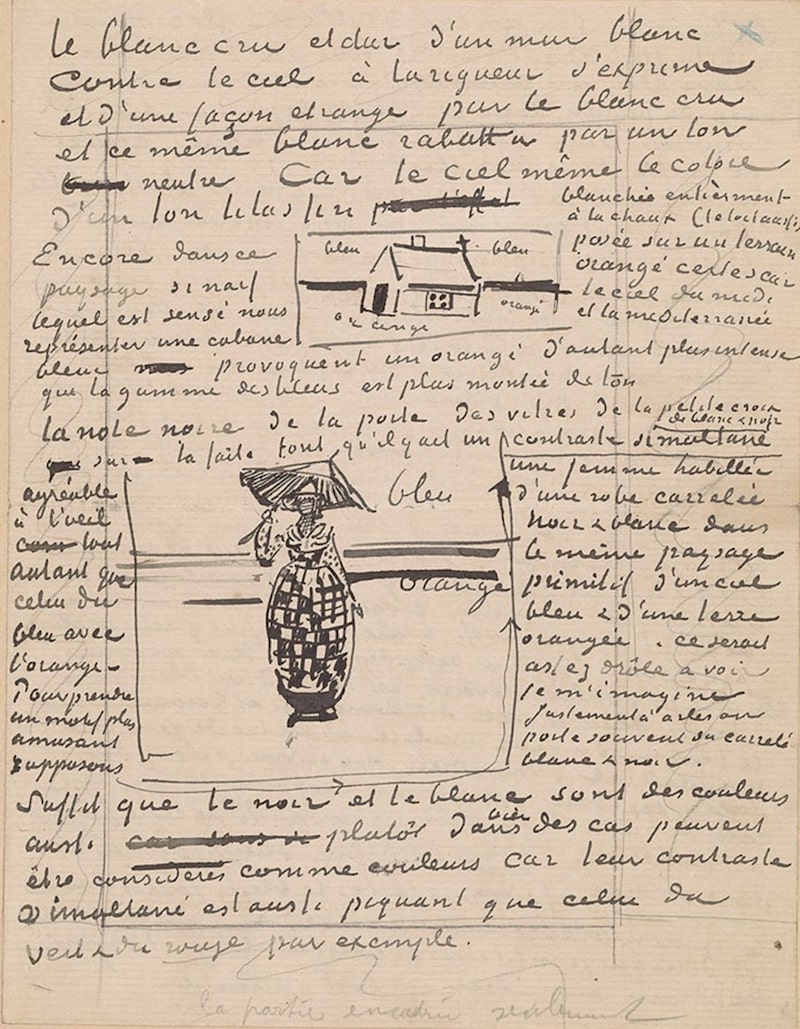 le blanc cru et dur d'un mur blanc
contre le ciel à la rigueur s'exprime
et d'une façon etrange par le blanc cru
et ce même blanc rabattu par un ton
neutre Car le ciel même le colore
d'un ton lilas fin
blanchie entièrment
à la chaux (le toit aussi)
posée sur un terrain
orangé certes car
le ciel du midi
et la mediterranée
Encore dans ce
paysage si naif
lequel est sensé nous
représenter une cabane
bleu
bleu
orange
orangé
provoquent un orangé d'autant plus intense
que la gamme des bleus est plus montée de ton
la note noire de la porte des vitres de la petite croix
sur le faite font qu'il y ait un contraste simultané
de blanc & noir
agréable
à l'oeil
tout
autant que
celui du
bleu avec
l'orange -
Pour prendre
un motif plus
amusant
supposons
bleu
orange
une femme habillée
d'une robe carrelée
noir & blanc dans
le même paysage
primitif d'un ciel
bleu & d'une terre
orangée . ce serait
assez drôle a voir
je m'imagine
Justement à arles on
porte souvent du carrelé
blanc & noir .
Suffit que le noir et le blanc sont des couleurs
aussi plutôt dans bien des cas peuvent
être considérés comme couleurs car leur contraste
simultané est aussi piquant que celui du
vert & du rouge par exemple .
la partie encadrée seulement